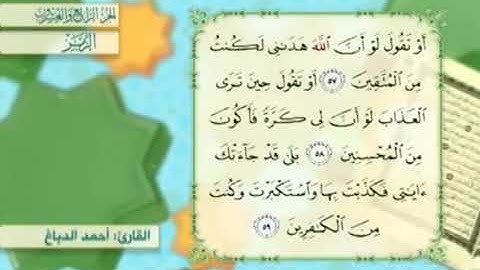 الجزء الرابع والعشرون
الزمر
أَوْ تَقُولَ لَوْ أَنَّ اللَّهَ هَدَىٰنِى لَكُنتُ
مِنَ الْمُتَّقِينَ ٥٧ أَوْ تَقُولَ حِينَ تَرَى
الْعَذَابَ لَوْ أَنَّ لِى كَرَّةً فَأَكُونَ
مِنَ الْمُحْسِنِينَ ٥٨ بَلَىٰ قَدْ جَآءَتْكَ
ءَايَٰتِى فَكَذَّبْتَ بِهَا وَاسْتَكْبَرْتَ وَكُنتَ
مِنَ الْكَٰفِرِينَ ٥٩
القارئ: أحمد الدباغ